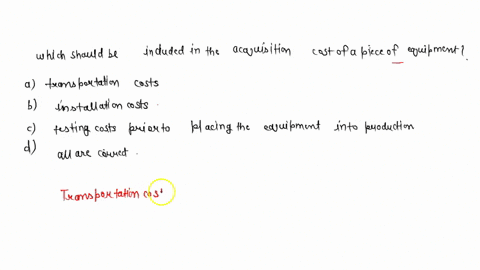 which should be included in the acquisition cost of a piece of equipment?
a) transportation costs
b) installation costs.
c) testing costs prior to placing the equipment into production
d) all are correct.
Transportation cos